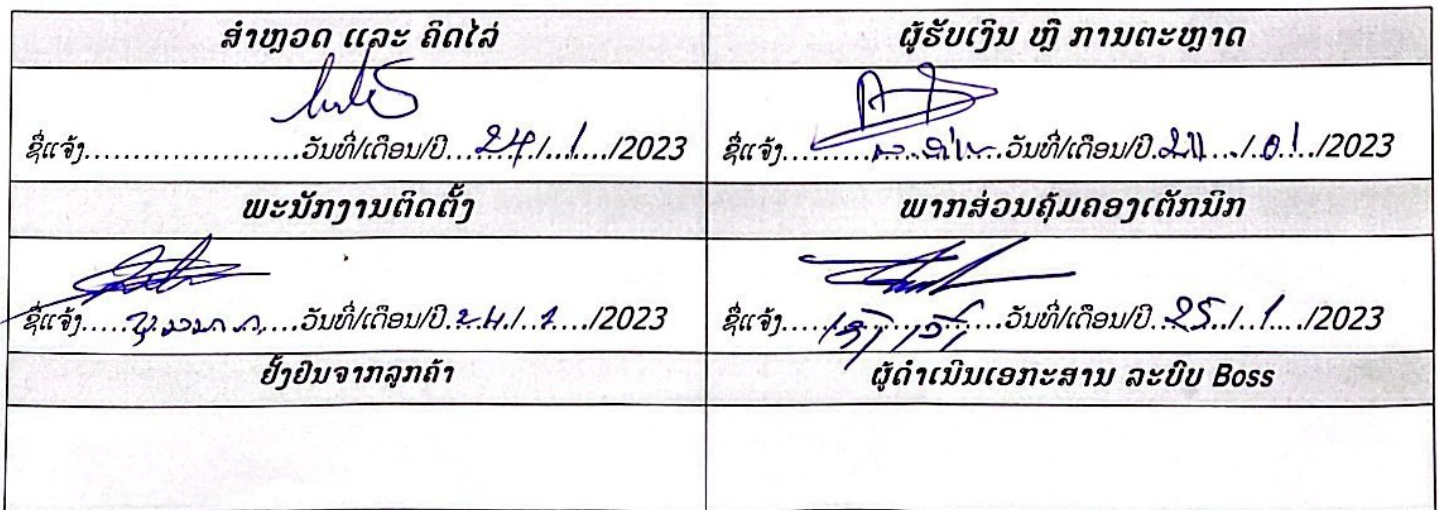 ສຳຫຼວດ ແລະ ຄິດໄລ່
ຜູ້ຮັບເງິນ ຫຼື ການຕະຫຼາດ
ຊື່ແຈ້ງ.....................ວັນທີ່/ເດືອນ/ປີ...24./..1..../2023
ຊື່ແຈ້ງ.....................ວັນທີ່/ເດືອນ/ປີ......./.01./2023
ພະນັກງານຕິດຕັ້ງ
ພາກສ່ວນຄຸ້ມຄອງເຕັກນິກ
ຊື່ແຈ້ງ.....................ວັນທີ່/ເດືອນ/ປີ..24./..1..../2023
ຊື່ແຈ້ງ.....................ວັນທີ່/ເດືອນ/ປີ..25../..1..../2023
ຢັ້ງຢືນຈາກລູກຄ້າ
ຜູ້ດຳເນີນເອກະສານ ລະບົບ Boss